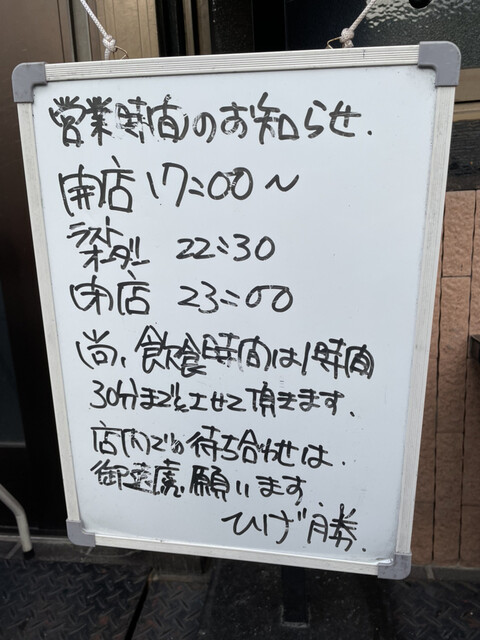 営業時間のお知らせ.
開店 17:00〜
ラストオーダー 22:30
閉店 23:00
尚、飲食時間は1時間
30分までとさせて頂きます.
店内での待ち合わせは.
御遠慮願います.
ひげ勝.